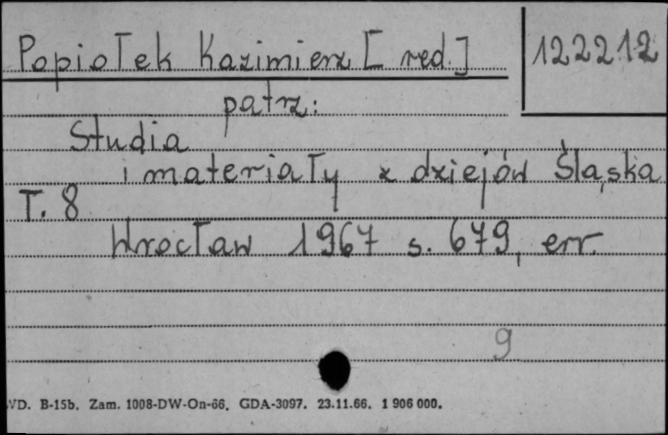 Popiołek Kazimierz [red.]
122212
patrz:
Studia
i materiały z dziejów Śląska
T. 8
Wrocław 1967 s. 679, err.
9
WD. B-15b. Zam. 1008-DW-On-66. GDA-3097. 23.11.66. 1 906 000.